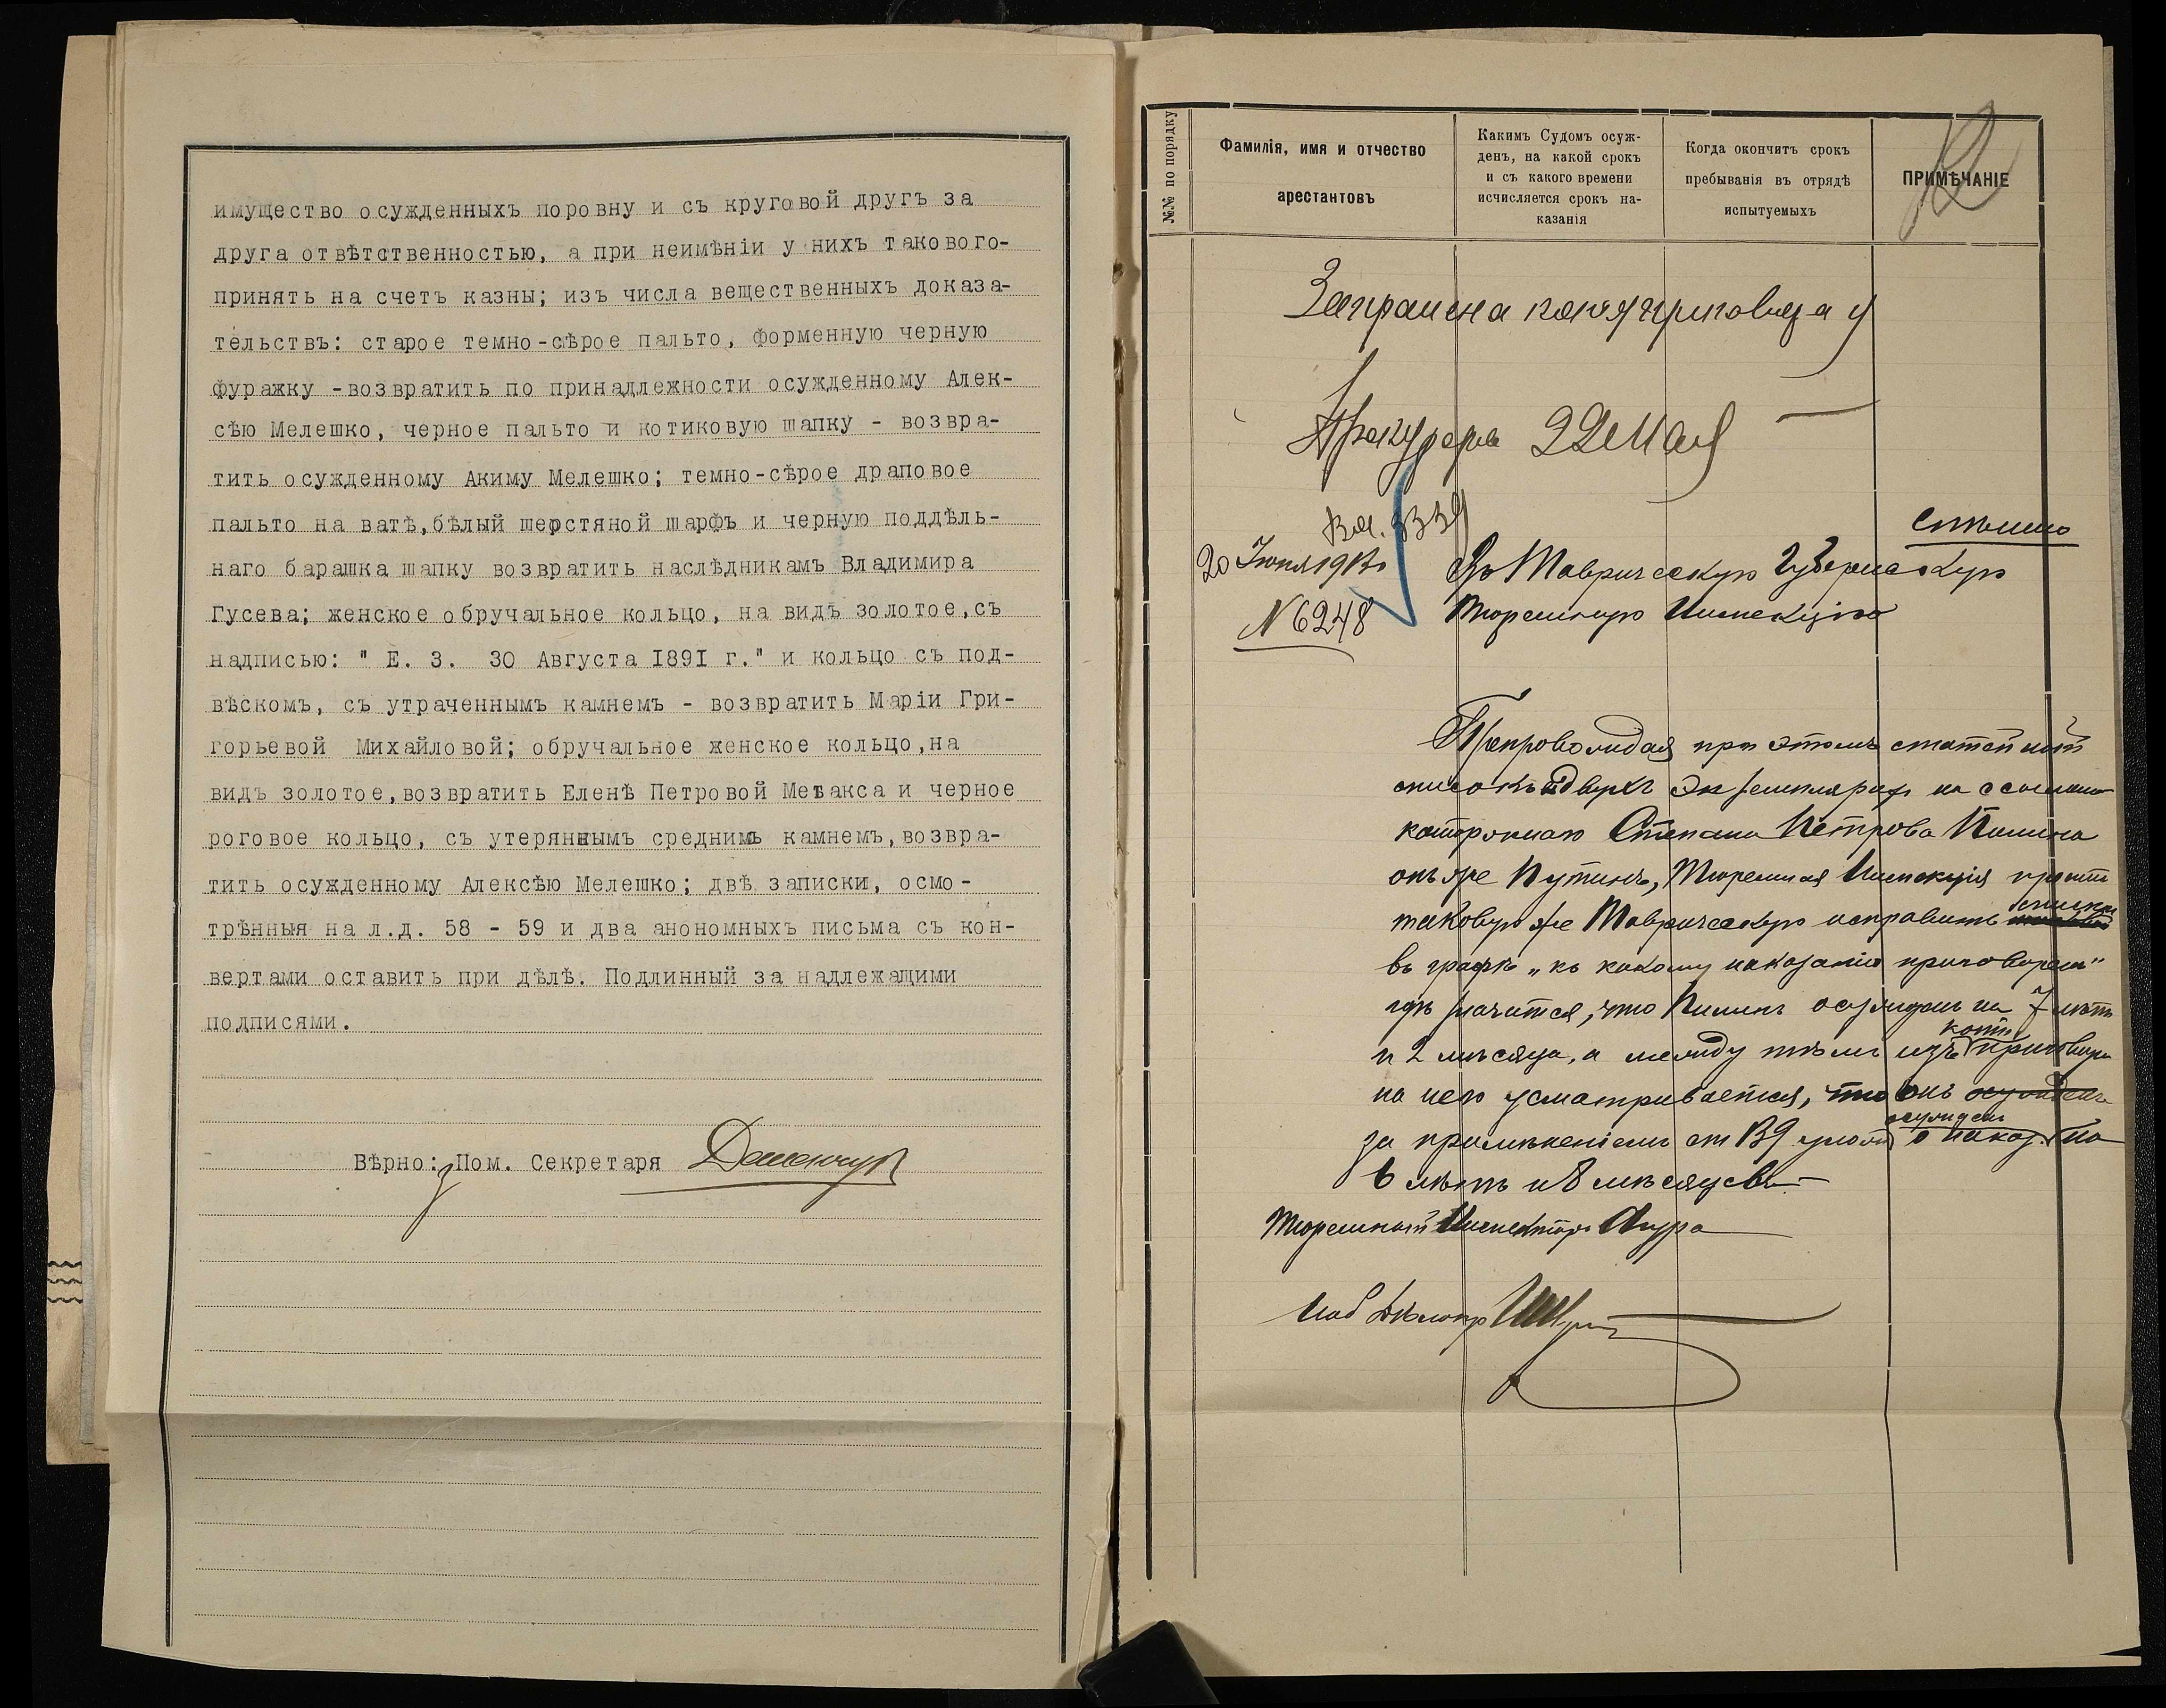 имущество осужденныхъ поровну и съ круговой другъ за
друга отвѣтственностью, а при неимѣніи у нихъ таковаго-
принять на счетъ казны; изъ числа вещественныхъ доказа-
тельствъ: старое темно-сѣрое пальто, форменную черную
фуражку -возвратить по принадлежности осужденному Алек-
сѣю Мелешко, черное пальто и котиковую шапку - возвра-
тить осужденному Акиму Мелешко; темно-сѣрое драповое
пальто на ватѣ,бѣлый шерстяной шарфъ и черную поддѣль-
наго барашка шапку возвратить наслѣдникамъ Владимира
Гусева; женское обручальное кольцо, на видъ золотое,съ
надписью: " Е. З. 30 Августа I89I г." и кольцо съ под-
вѣскомъ, съ утраченнымъ камнемъ - возвратить Маріи Гри-
горьевой Михайловой; обручальное женское кольцо,на
видъ золотое,возвратить Еленѣ Петровой Метакса и черное
роговое кольцо, съ утеряннымъ среднимъ камнемъ,возвра-
тить осужденному Алексѣю Мелешко; двѣ записки, осмо-
трѣнныя на л.д. 58 - 59 и два анономныхъ письма съ кон-
вертами оставить при дѣлѣ. Подлинный за надлежащими
подписями.
Вѣрно: Пом. Секретаря
№№ по порядку
Фамилія, имя и отчество
арестантовъ
Какимъ Судомъ осуж-
денъ, на какой срокъ
и съ какого времени
исчисляется срокъ на-
казанія
Когда окончитъ срокъ
пребыванія въ отрядѣ
испытуемыхъ
ПРИМѢЧАНІЕ
Запрошена копія приговора у
Прокурора 22 Мая
Вх. 3339
Спѣшно
20 Іюня 1913
№ 6248
Въ Таврическую Губернскую
Тюремную Инспекцію
Препровождая при этомъ статейный
списокъ въ двухъ экземплярахъ на ссыльно
каторжнаго Степана Петрова
онъ же Путинъ, Тюремная Инспекція проситъ
таковую же Таврическую исправить списки
въ графѣ „къ какому наказанію приговоренъ"
гдѣ значится, что осужденъ на 7 лѣтъ
и 2 мѣсяца, а между тѣмъ изъ копіи приговора
на него усматривается, что онъ осужденъ
за примѣненіемъ ст о наказ. осужденъ на
6 лѣтъ и 8 мѣсяцевъ
Тюремный Инспекторъ